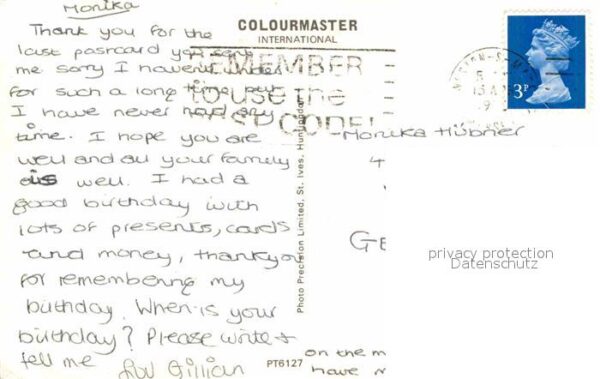 Monika
Thank you for the
last postcard you sent
me sorry I haven't
for such a long time but
I have never had any
time. I hope you are
well and all your family
is well. I had a
good birthday with
lots of presents, cards
and money, thankyou
for remembering my
birthday. When is your
birthday? Please write +
tell me Luv Gillian
COLOURMASTER
INTERNATIONAL
REMEMBER
to use the
POST CODE!
3P
Monika Hübner
4
GE
privacy protection
Datenschutz
Photo Precision Limited, St. Ives, Huntingdon
PT6127
on the m
have n